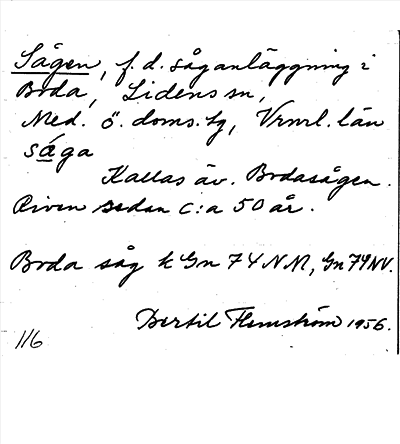 Sågen, f.d. såganläggning i
Boda, Lidens sn,
Med. ö. doms. tg, Vrnrl. län
såga
Kallas äv. Bodasågen.
Riven sedan c:a 50 år.
Boda såg k Gn 74 NM, Gn 74 NV.
Bertil Flemström 1956.
116